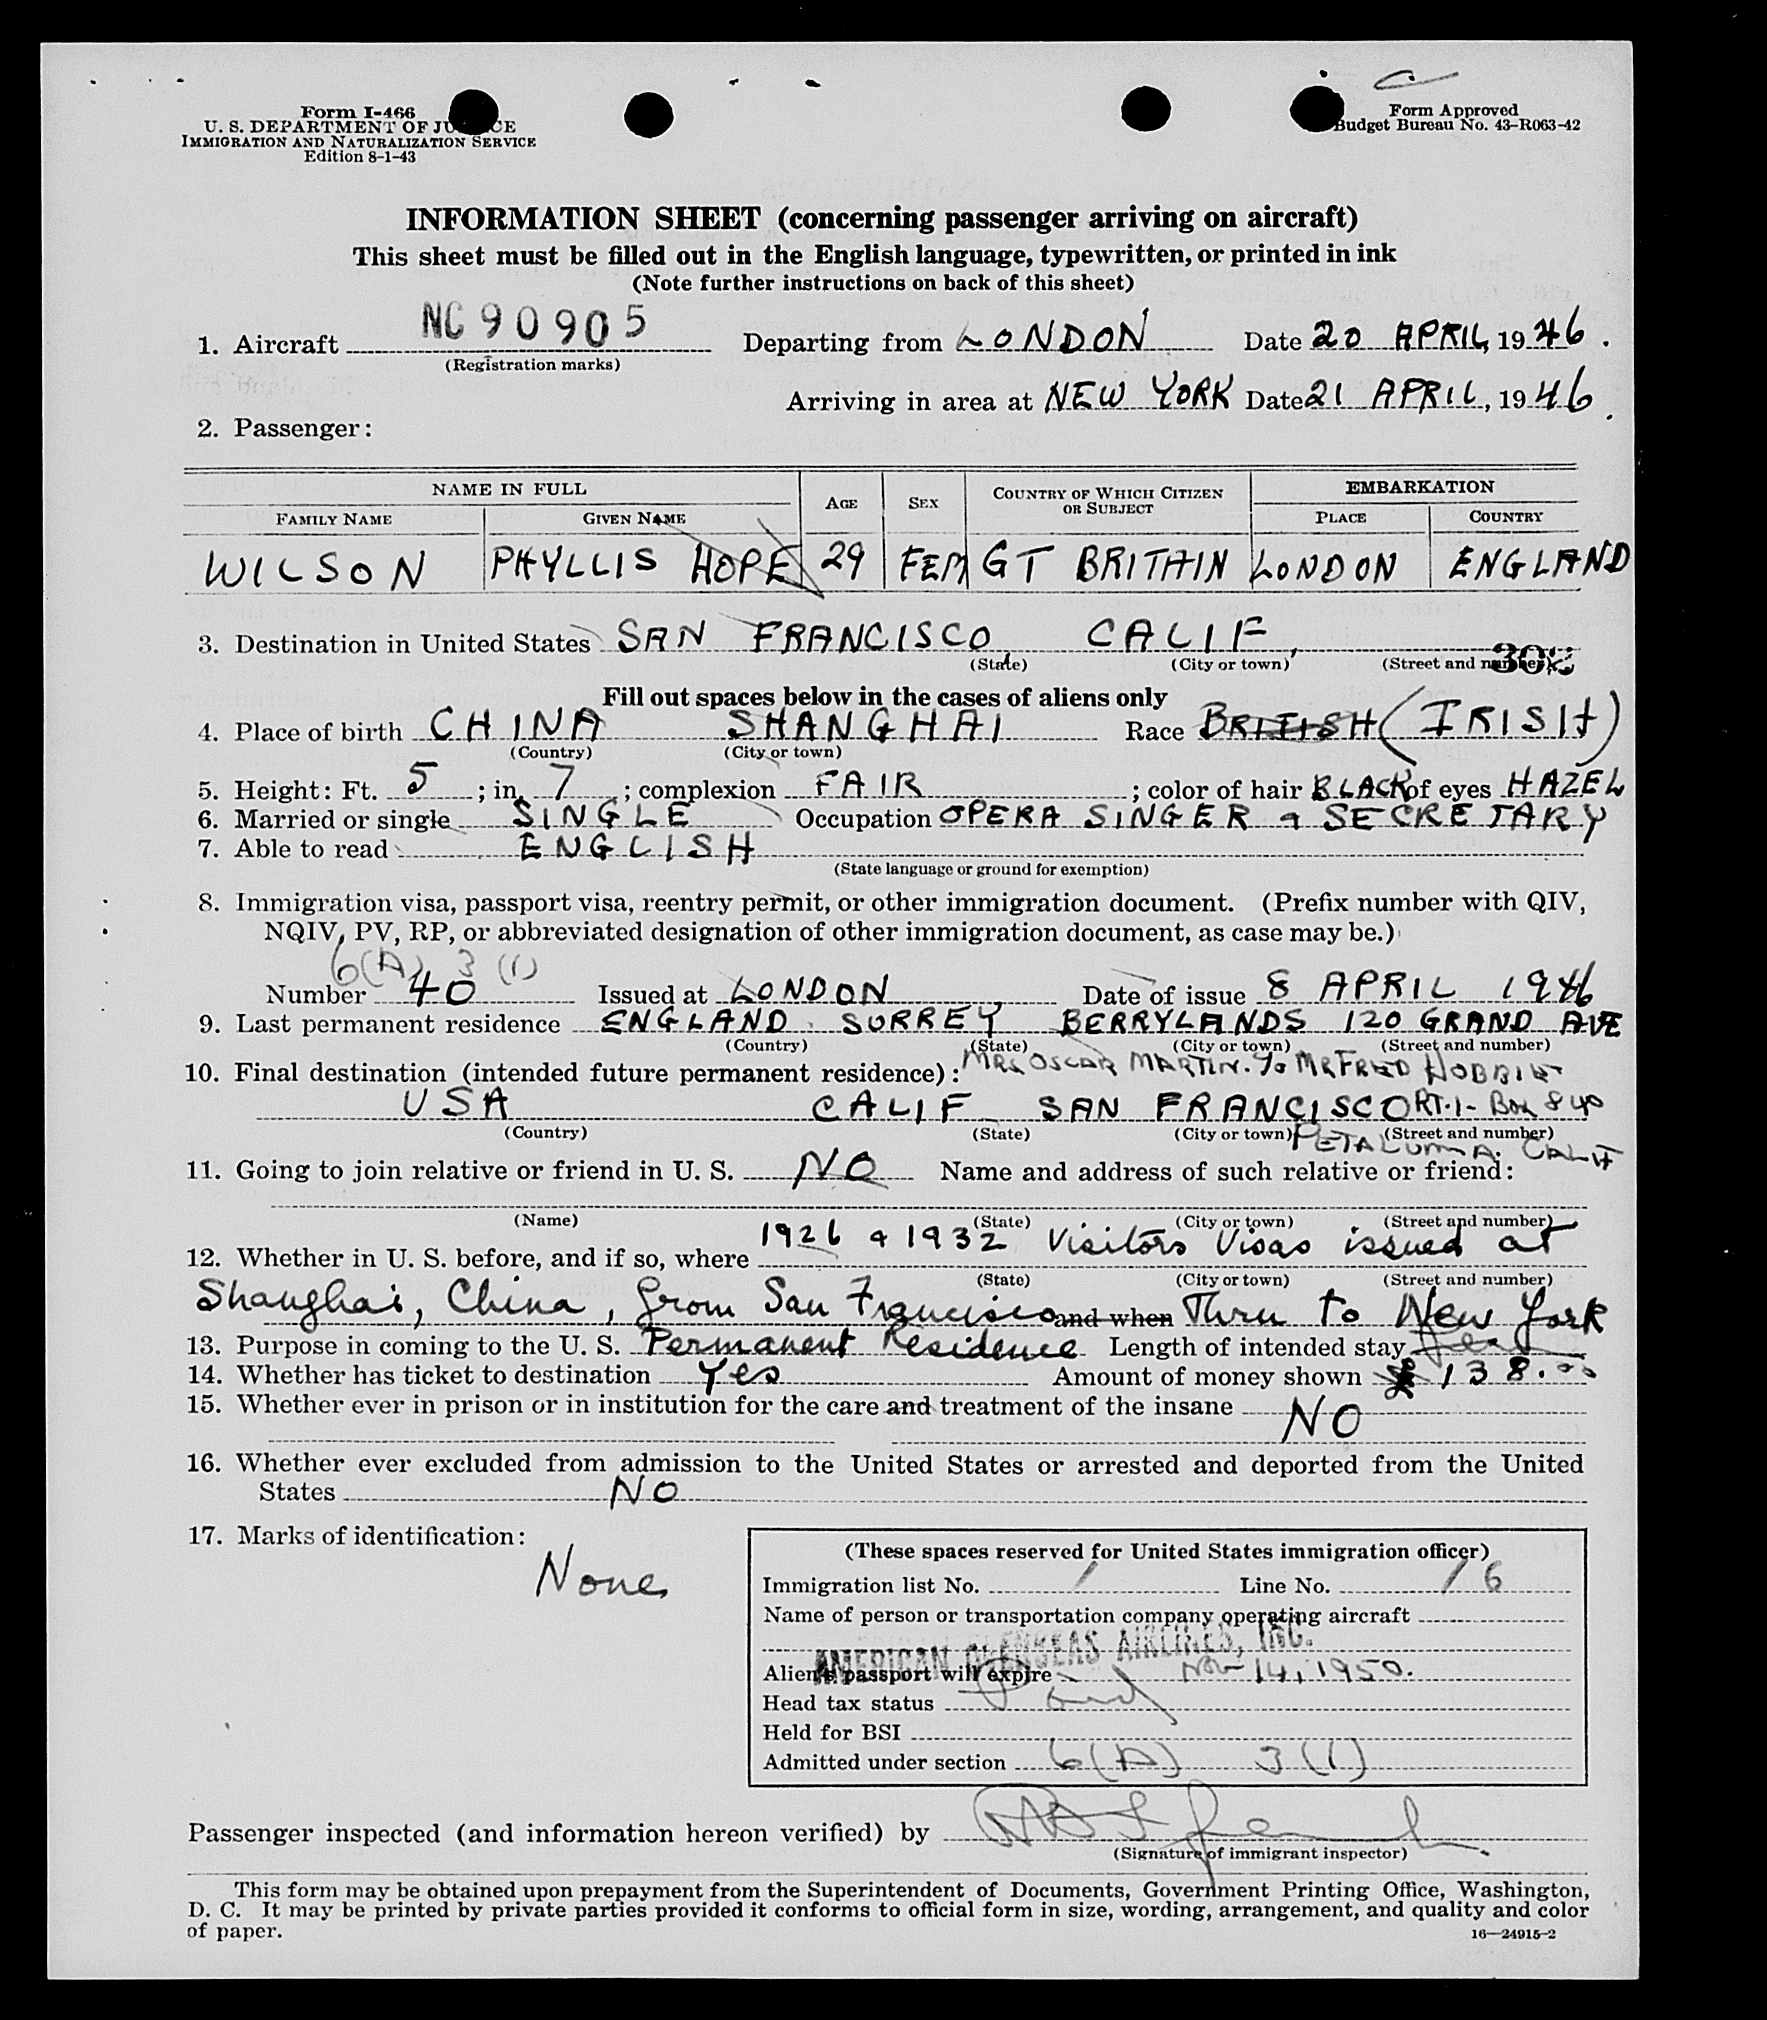 Form I-466
U. S. DEPARTMENT OF JU CE
IMMIGRATION AND NATURALIZATION SERVICE
Edition 8-1-43
Form Approved
Budget Bureau No. 43-R063-42
INFORMATION SHEET (concerning passenger arriving on aircraft)
This sheet must be filled out in the English language, typewritten, or printed in ink
(Note further instructions on back of this sheet)
1. Aircraft NC 90905 Departing from LONDON Date 20 APRIL, 1946.
(Registration marks)
Arriving in area at NEW YORK Date 21 APRIL, 1946.
2. Passenger:
NAME IN FULL AGE SEX COUNTRY OF WHICH CITIZEN OR SUBJECT EMBARKATION
FAMILY NAME GIVEN NAME PLACE COUNTRY
WILSON PHYLLIS HOPE 29 FEM GT BRITAIN LONDON ENGLAND
3. Destination in United States SAN FRANCISCO, CALIF,
(State) (City or town) (Street and number)
Fill out spaces below in the cases of aliens only
4. Place of birth CHINA SHANGHAI Race BRITISH (IRISH)
(Country) (City or town)
5. Height: Ft. 5; in. 7; complexion FAIR; color of hair BLACK of eyes HAZEL
6. Married or single SINGLE Occupation OPERA SINGER & SECRETARY
7. Able to read ENGLISH
(State language or ground for exemption)
8. Immigration visa, passport visa, reentry permit, or other immigration document. (Prefix number with QIV,
NQIV, PV, RP, or abbreviated designation of other immigration document, as case may be.)
6(A) 3 (1)
Number 40 Issued at LONDON Date of issue 8 APRIL 1946
9. Last permanent residence ENGLAND SURREY BERRYLANDS 120 GRAND AVE
(Country) (State) (City or town) (Street and number)
10. Final destination (intended future permanent residence): MRS OSCAR MARTIN. % MR FRED
USA CALIF SAN FRANCISCO RT. 1 - Box 840
(Country) (State) (City or town) (Street and number)
PETALUMA. CALIF
11. Going to join relative or friend in U. S. NO Name and address of such relative or friend:
(Name) (State) (City or town) (Street and number)
12. Whether in U. S. before, and if so, where 1926 & 1932 Visitors Visas issued at
(State) (City or town) (Street and number)
Shanghai, China, from San Francisco and when Thru to New York
13. Purpose in coming to the U. S. Permanent Residence Length of intended stay
14. Whether has ticket to destination Yes Amount of money shown $ 138.00
15. Whether ever in prison or in institution for the care and treatment of the insane NO
16. Whether ever excluded from admission to the United States or arrested and deported from the United
States NO
17. Marks of identification:
None
(These spaces reserved for United States immigration officer)
Immigration list No. 1 Line No. 16
Name of person or transportation company operating aircraft
AMERICAN OVERSEAS AIRLINES, INC.
Alien's passport will expire Nov 14, 1950.
Head tax status Paid
Held for BSI
Admitted under section 6(A) 3(1)
Passenger inspected (and information hereon verified) by
(Signature of immigrant inspector)
This form may be obtained upon prepayment from the Superintendent of Documents, Government Printing Office, Washington,
D. C. It may be printed by private parties provided it conforms to official form in size, wording, arrangement, and quality and color
of paper.
16—24915-2